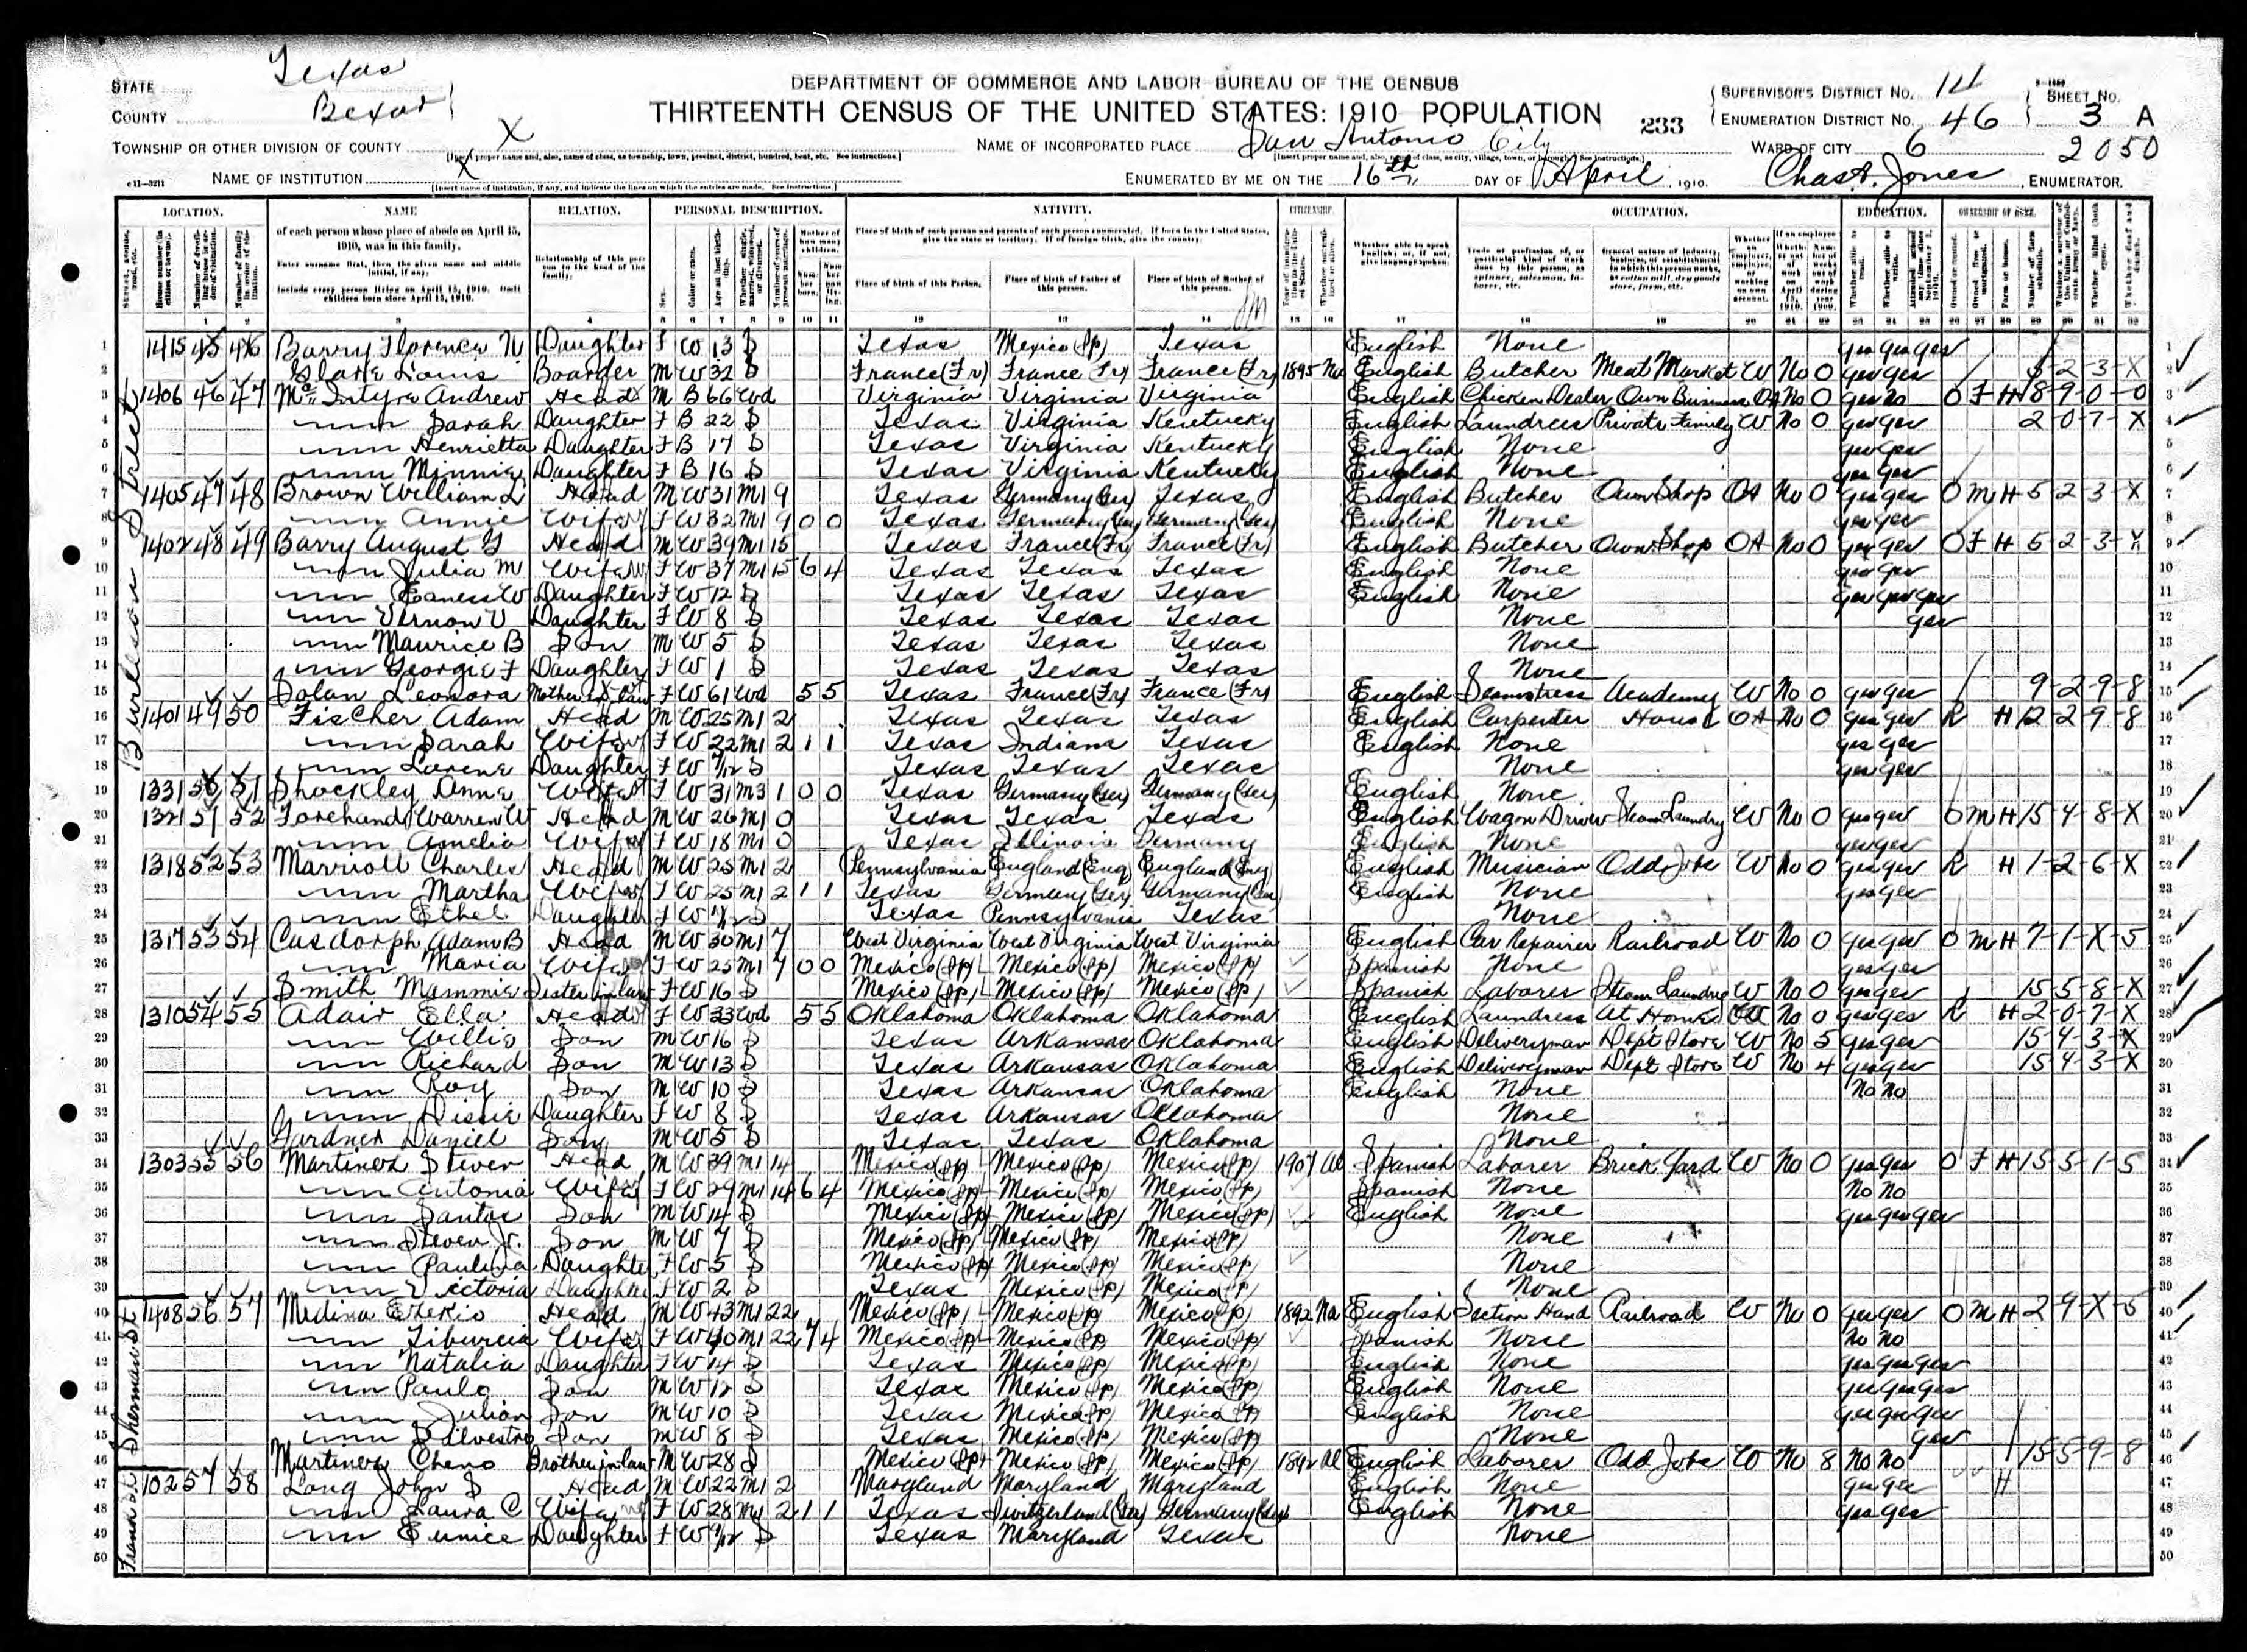 STATE Texas
COUNTY Bexar
DEPARTMENT OF COMMERCE AND LABOR-BUREAU OF THE CENSUS
THIRTEENTH CENSUS OF THE UNITED STATES: 1910 POPULATION
233
SUPERVISOR'S DISTRICT No. 14
ENUMERATION DISTRICT No. 46
SHEET No. 3 A
2050
TOWNSHIP OR OTHER DIVISION OF COUNTY X
[Insert proper name and, also, name of class, as township, town, precinct, district, hundred, beat, etc. See instructions.]
NAME OF INCORPORATED PLACE San Antonio City
[Insert proper name and, also, name of class, as city, village, town, or borough. See instructions.]
WARD OF CITY 6
NAME OF INSTITUTION X
[Insert name of institution, if any, and indicate the lines on which the entries are made. See instructions.]
ENUMERATED BY ME ON THE 16th DAY OF April, 1910. Chas A. Jones, ENUMERATOR.
LOCATION. NAME RELATION. PERSONAL DESCRIPTION. NATIVITY. CITIZENSHIP. OCCUPATION. EDUCATION. OWNERSHIP OF HOME.
of each person whose place of abode on April 15, 1910, was in this family.
Enter surname first, then the given name and middle initial, if any.
Include every person living on April 15, 1910. Omit children born since April 15, 1910.
Relationship of this person to the head of the family.
Place of birth of each person and parents of each person enumerated. If born in the United States, give the state or territory. If of foreign birth, give the country.
Place of birth of this Person. Place of birth of Father of this person. Place of birth of Mother of this person.
Whether able to speak English; or, if not, give language spoken.
Burleson Street
1 1415 45 46 Barry Florence Daughter F W 13 S Texas Mexico (Sp) Texas English None yes yes yes
2 Louis Boarder M W 32 S France (Fr) France (Fr) France (Fr) 1895 Na English Butcher Meat Market W No 0 yes yes 5-2-3-X
3 1406 46 47 McIntyre Andrew Head M B 66 Wd Virginia Virginia Virginia English Chicken Dealer Own Business OA No 0 yes no O F H 18-9-0-0
4 Sarah Daughter F B 22 S Texas Virginia Kentucky English Laundress Private Family W No 0 yes yes 2-0-7-X
5 Henrietta Daughter F B 17 S Texas Virginia Kentucky English None yes yes
6 Minnie Daughter F B 16 S Texas Virginia Kentucky English None yes yes
7 1405 47 48 Brown William L Head M W 31 M1 9 Texas Germany (Ger) Texas English Butcher Own Shop OA No 0 yes yes O M H 5-2-3-X
8 Annie Wife F W 32 M1 9 0 0 Texas Germany (Ger) Germany (Ger) English None yes yes
9 1402 48 49 Barry August G Head M W 39 M1 15 Texas France (Fr) France (Fr) English Butcher Own Shop OA No 0 yes yes O F H 5-2-3-X
10 Julia M Wife F W 37 M1 15 6 4 Texas Texas Texas English None yes yes
11 W Daughter F W 12 S Texas Texas Texas English None yes yes yes
12 Vernon V Daughter F W 8 S Texas Texas Texas None yes
13 Maurice B Son M W 5 S Texas Texas Texas None
14 Georgie F Daughter F W 1 S Texas Texas Texas None
15 Leonora Mother in law F W 61 Wd 5 5 Texas France (Fr) France (Fr) English Seamstress Academy W No 0 yes yes 9-2-9-8
16 1401 49 50 Fischer Adam Head M W 25 M1 2 Texas Texas Texas English Carpenter House OA No 0 yes yes R H 12-2-9-8
17 Sarah Wife F W 22 M1 2 1 1 Texas Indiana Texas English None yes yes
18 Lorene Daughter F W S Texas Texas Texas None yes yes
19 1331 50 51 Shockley Anna Wife F W 31 M3 1 0 0 Texas Germany (Ger) Germany (Ger) English None
20 1321 51 52 Forehand Warren W Head M W 26 M1 0 Texas Texas Texas English Wagon Driver Steam Laundry W No 0 yes yes O M H 15-4-8-X
21 Amelia Wife F W 18 M1 0 Texas Illinois Germany English None yes yes
22 1318 52 53 Marriott Charles Head M W 25 M1 2 Pennsylvania England (Eng) England (Eng) English Musician Odd Jobs W No 0 yes yes R H 1-2-6-X
23 Martha Wife F W 25 M1 2 1 1 Texas Germany (Ger) Germany (Ger) English None yes yes
24 Ethel Daughter F W S Texas Pennsylvania Texas None
25 1317 53 54 Casdorph Adam B Head M W 30 M1 7 West Virginia West Virginia West Virginia English Car Repairer Railroad W No 0 yes yes O M H 7-1-X-5
26 Maria Wife F W 25 M1 7 0 0 Mexico (Sp) Mexico (Sp) Mexico (Sp) Spanish None yes yes
27 Smith Mammie Sister in law F W 16 S Mexico (Sp) Mexico (Sp) Mexico (Sp) Spanish Laborer Steam Laundry W No 0 yes yes 15-5-8-X
28 1310 54 55 Adair Ella Head F W 33 Wd 5 5 Oklahoma Oklahoma Oklahoma English Laundress At Home OA No 0 yes yes R H 2-0-7-X
29 Willis Son M W 16 S Texas Arkansas Oklahoma English Deliveryman Dept Store W No 5 yes yes 15-4-3-X
30 Richard Son M W 13 S Texas Arkansas Oklahoma English Deliveryman Dept Store W No 4 yes yes 15-4-3-X
31 Roy Son M W 10 S Texas Arkansas Oklahoma English None No No
32 Daughter F W 8 S Texas Arkansas Oklahoma None
33 Gardner Daniel Son M W 5 S Texas Texas Oklahoma None
34 1303 55 56 Martinez Steven Head M W 39 M1 14 Mexico (Sp) Mexico (Sp) Mexico (Sp) 1907 Al Spanish Laborer Brick Yard W No 0 yes yes O F H 15-5-1-5
35 Antonia Wife F W 29 M1 14 6 4 Mexico (Sp) Mexico (Sp) Mexico (Sp) Spanish None No No
36 Santos Son M W 14 S Mexico (Sp) Mexico (Sp) Mexico (Sp) English None yes yes yes
37 Steven Jr. Son M W 7 S Mexico (Sp) Mexico (Sp) Mexico (Sp) None
38 Paulina Daughter F W 5 S Mexico (Sp) Mexico (Sp) Mexico (Sp) None
39 Victoria Daughter F W 2 S Texas Mexico (Sp) Mexico (Sp) None
Sherman St
40 1408 56 57 Medina Head M W 43 M1 22 Mexico (Sp) Mexico (Sp) Mexico (Sp) 1892 Na English Section Hand Railroad W No 0 yes yes O M H 2-9-X-5
41 Tiburcia Wife F W 40 M1 22 7 4 Mexico (Sp) Mexico (Sp) Mexico (Sp) Spanish None No No
42 Natalia Daughter F W 14 S Texas Mexico (Sp) Mexico (Sp) English None yes yes yes
43 Paulo Son M W 12 S Texas Mexico (Sp) Mexico (Sp) English None yes yes yes
44 Julian Son M W 10 S Texas Mexico (Sp) Mexico (Sp) English None yes yes yes
45 Silvestro Son M W 8 S Texas Mexico (Sp) Mexico (Sp) None yes
46 Martinez Brother in law M W 28 S Mexico (Sp) Mexico (Sp) Mexico (Sp) 1892 Al English Laborer Odd Jobs W No 8 No No 15-5-9-8
47 102 57 58 Long John S Head M W 22 M1 2 Maryland Maryland Maryland English None yes yes H
48 Laura C Wife F W 28 M1 2 1 1 Texas Switzerland (Ger) Germany (Ger) English None yes yes
49 Eunice Daughter F W S Texas Maryland Texas None
50